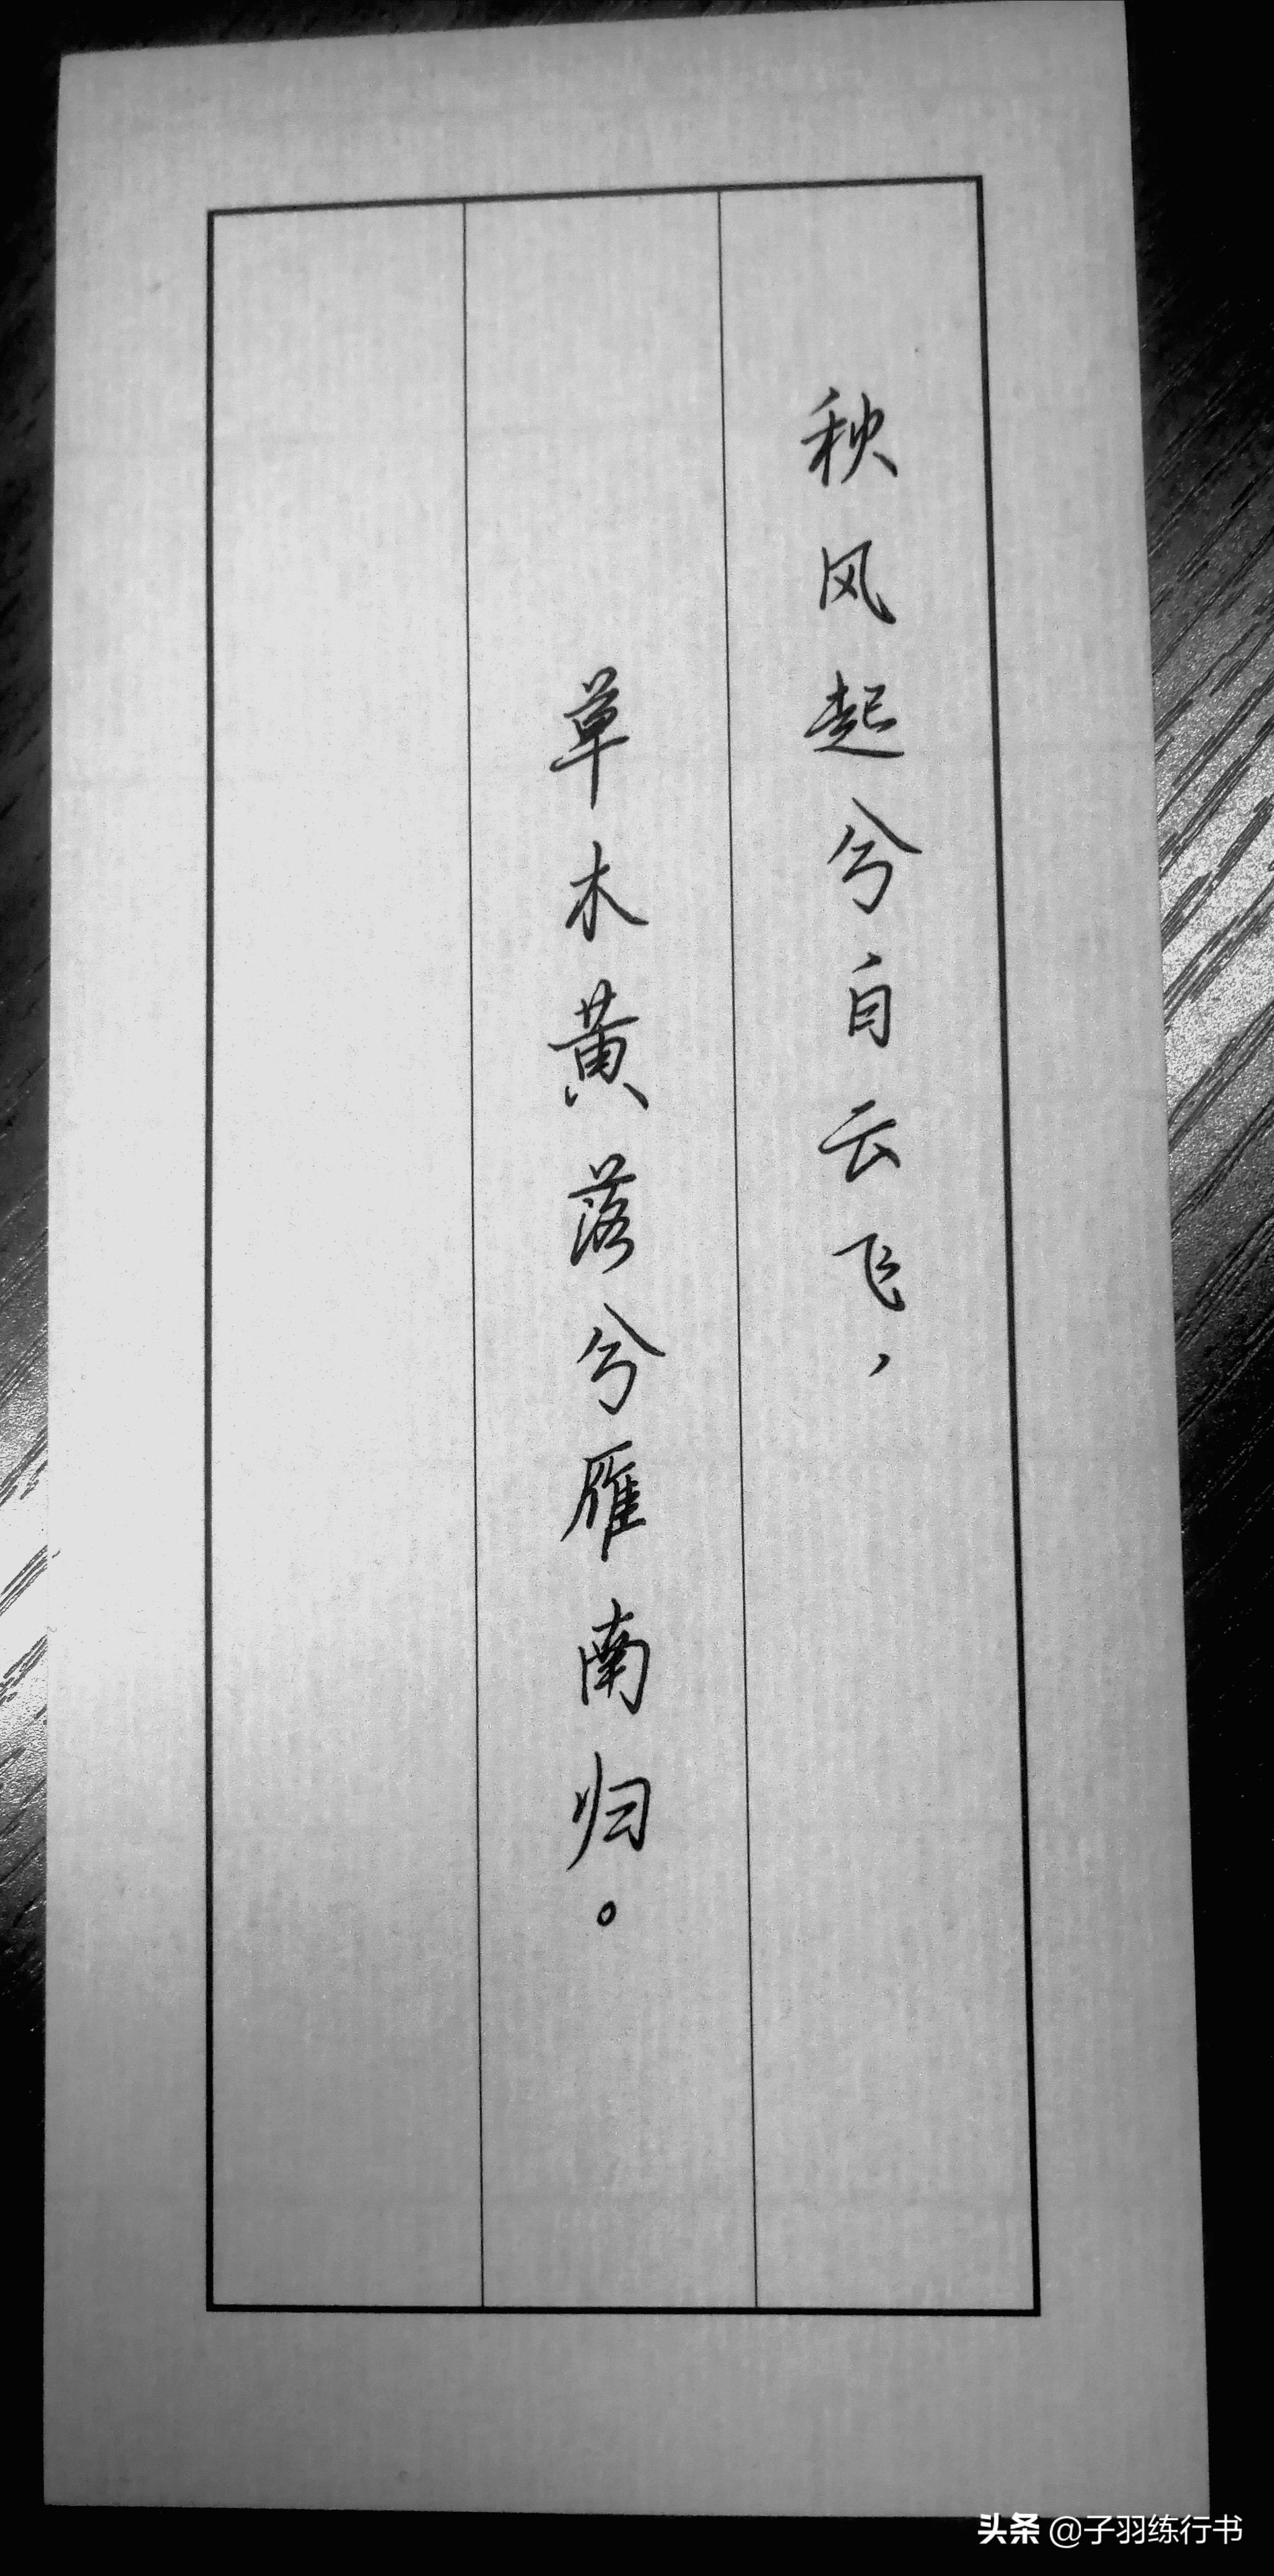 秋风起兮白云飞，
草木黄落兮雁南归。
头条 @子羽练行书